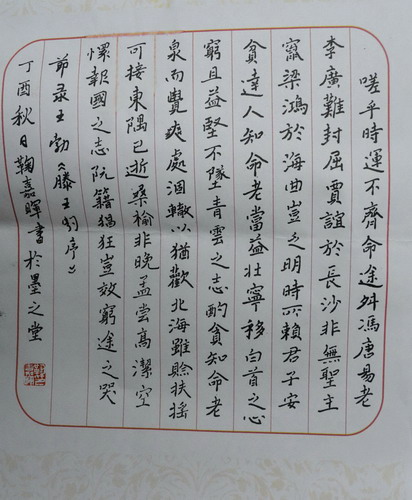 嗟乎時運不齊命途舛馮唐易老
李廣難封屈賈誼於長沙非無聖主
竄梁鴻於海曲豈乏明時所賴君子安
貧達人知命老當益壯寧移白首之心
窮且益堅不墜青雲之志酌貪知命老
泉而覺爽處涸轍以猶歡北海雖賒扶搖
可接東隅已逝桑榆非晚孟嘗高潔空
懷報國之志阮籍猖狂豈效窮途之哭
節录王勃《滕王阁序》
丁酉秋日鞠嘉暉書於墨之堂